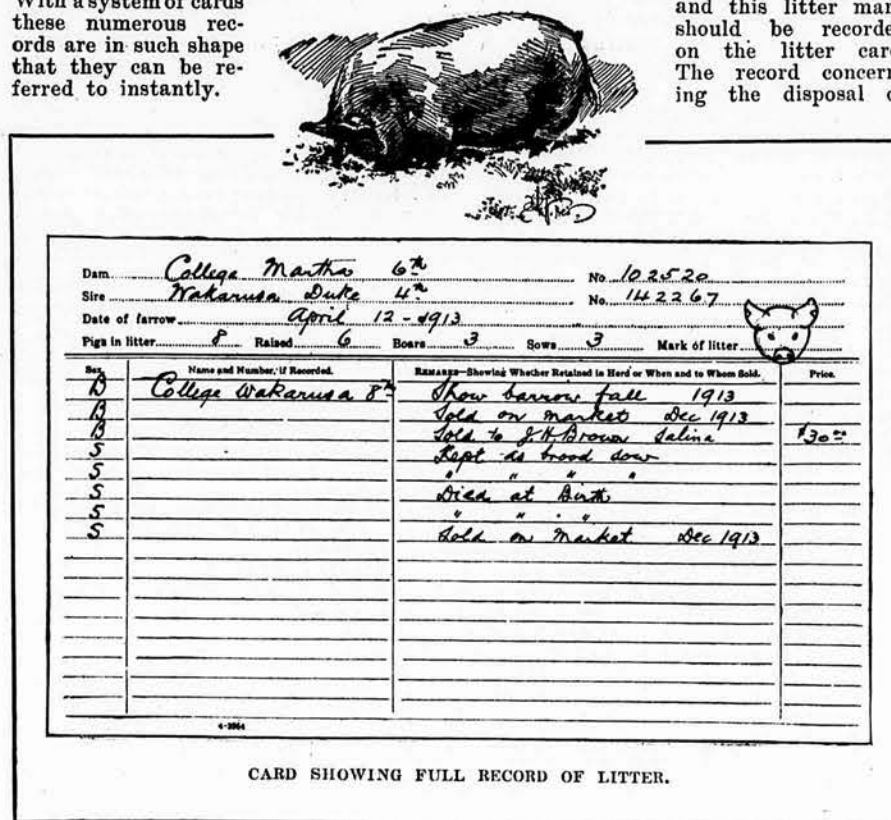 With a system of cards
these numerous rec-
ords are in such shape
that they can be re-
ferred to instantly.
and this litter mar
should be recorde
on the litter card
The record concern
ing the disposal o
Dam College Martha 6th No. 102520
Sire Wakarusa Duke 4th No. 142267
Date of farrow April 12 - 1913
Pigs in litter 8 Raised 6 Boars 3 Sows 3 Mark of litter
Sex. Name and Number, if Recorded. REMARKS—Showing Whether Retained in Herd or When and to Whom Sold. Price.
B College Wakarusa 8th Show barrow fall 1913
B Sold on market Dec 1913
B Sold to J.H. Brown Salina $30.00
S Kept as brood sow
S " " " "
S Died at Birth
S " " "
S Sold on market Dec 1913
CARD SHOWING FULL RECORD OF LITTER.